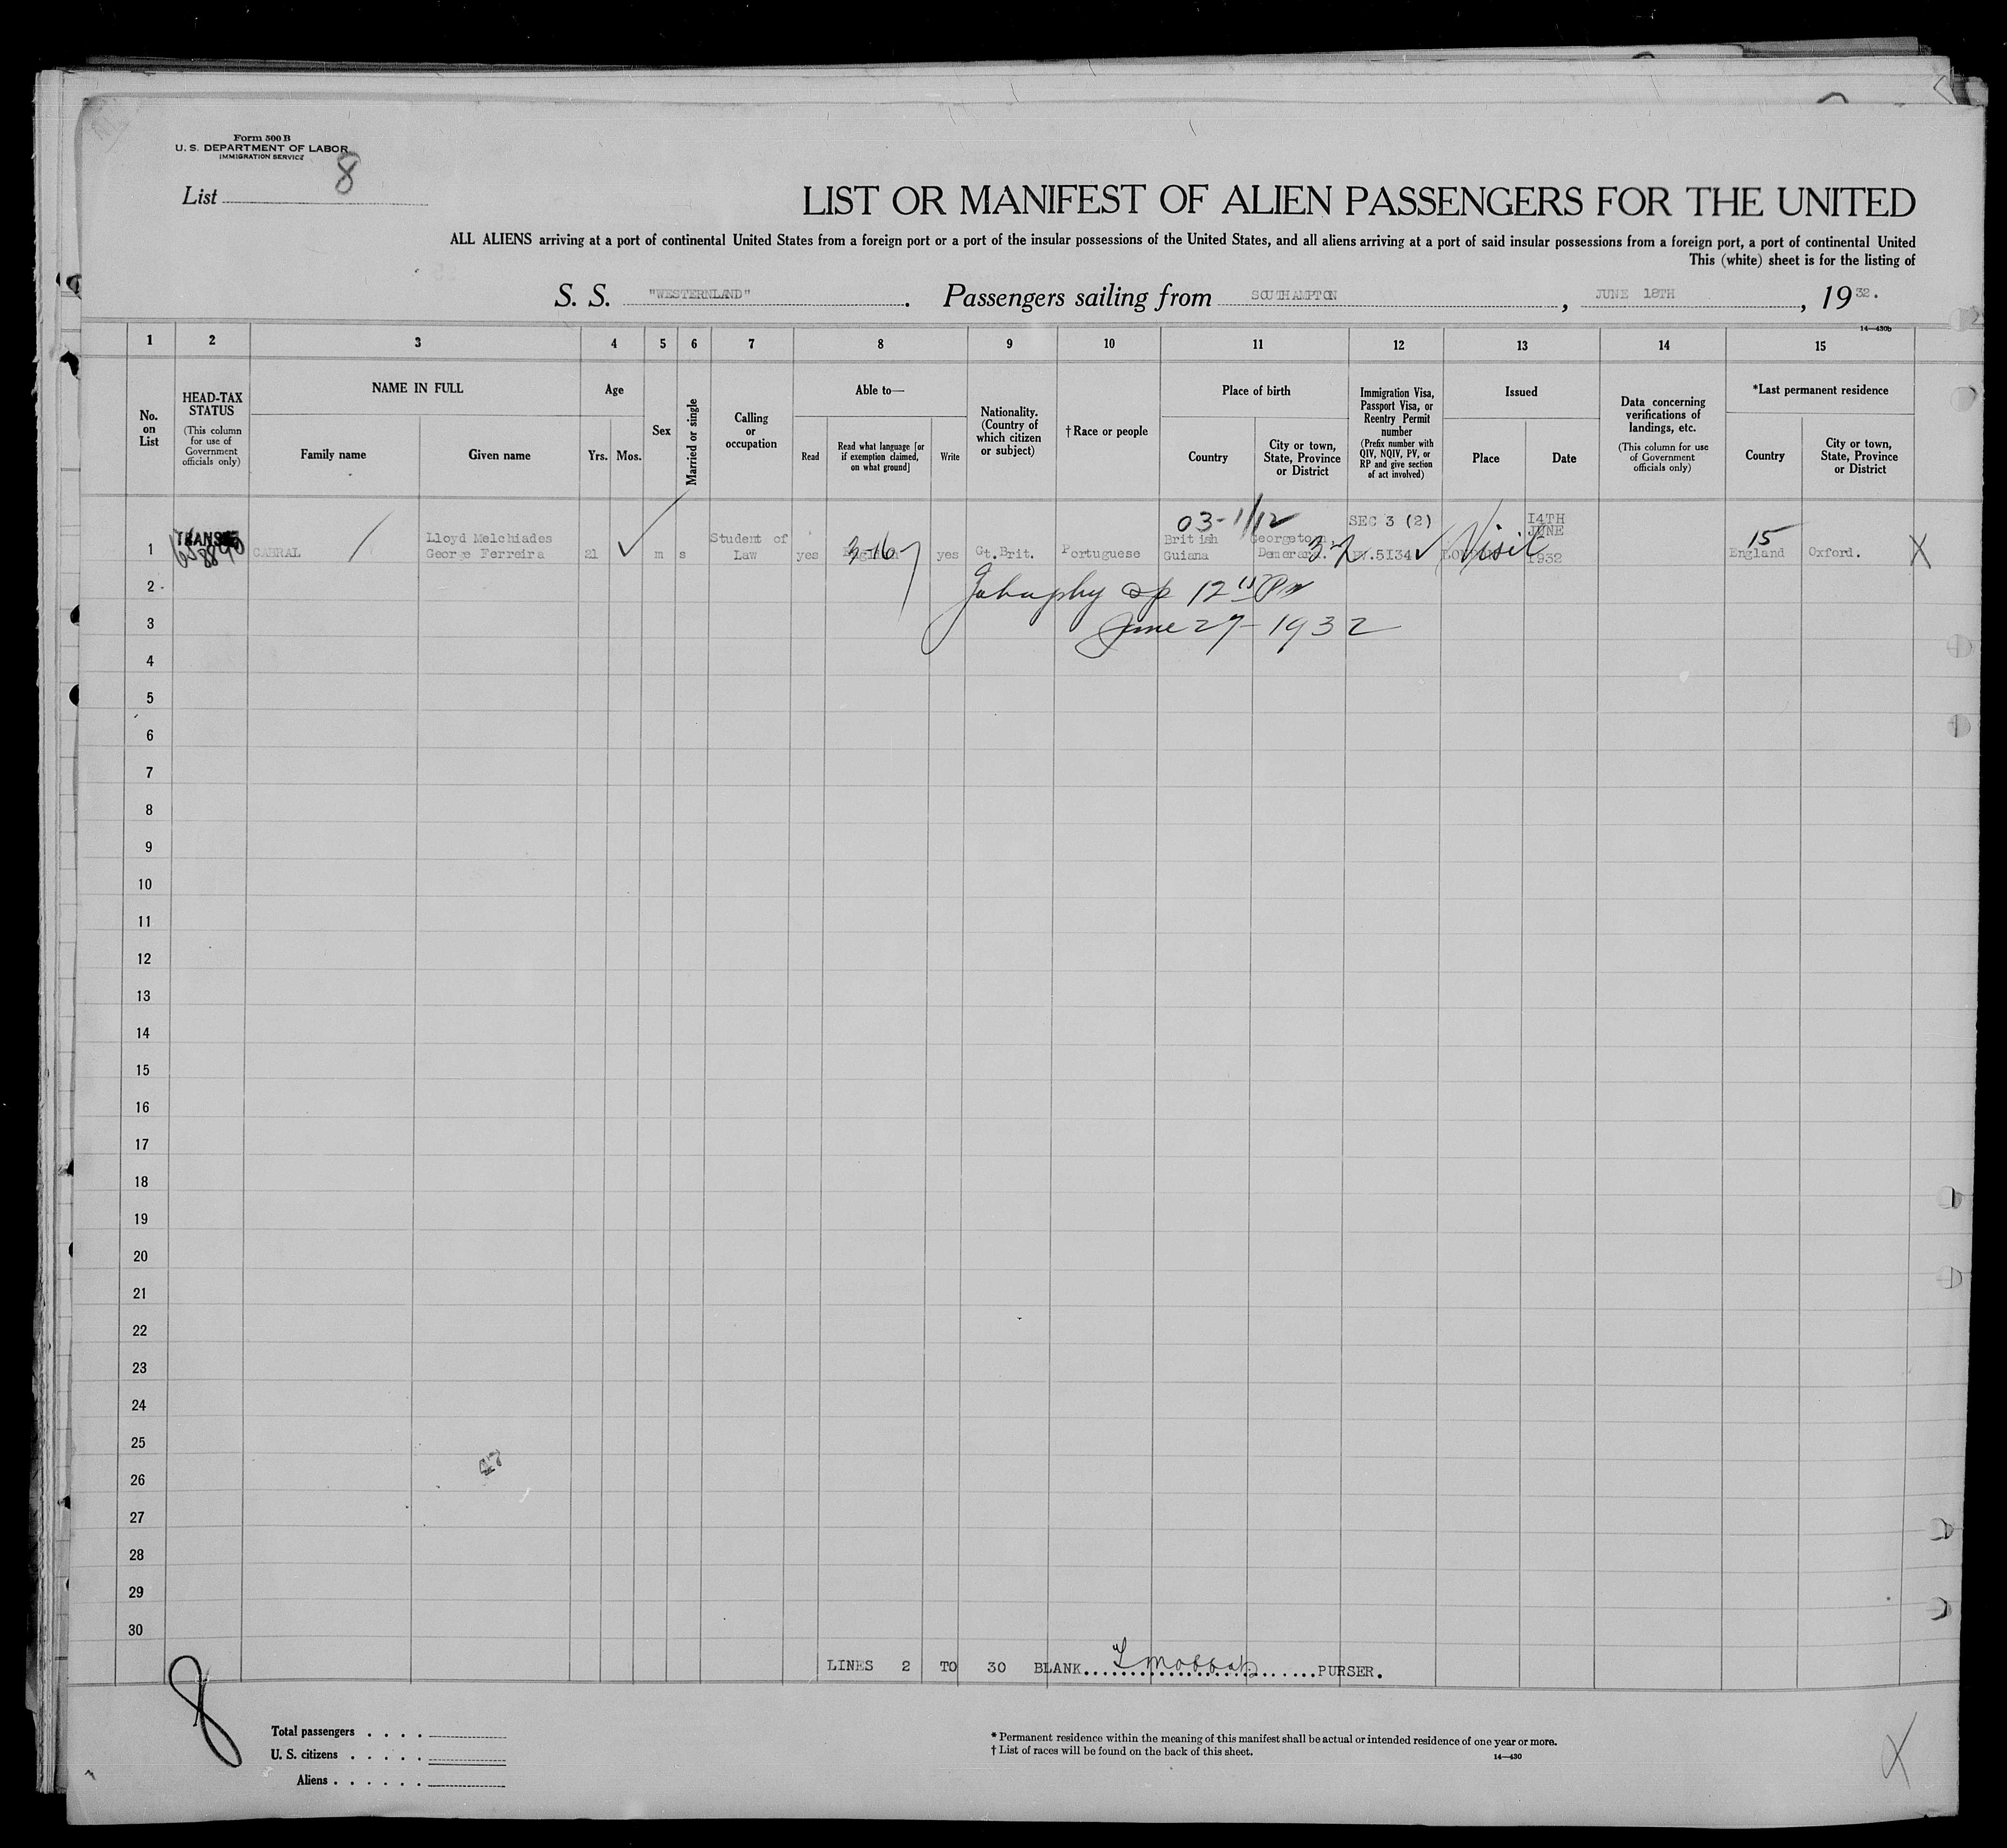 Form 500 B
U. S. DEPARTMENT OF LABOR
IMMIGRATION SERVICE
List 8
LIST OR MANIFEST OF ALIEN PASSENGERS FOR THE UNITED
ALL ALIENS arriving at a port of continental United States from a foreign port or a port of the insular possessions of the United States, and all aliens arriving at a port of said insular possessions from a foreign port, a port of continental United
This (white) sheet is for the listing of
S. S. "WESTERNLAND". Passengers sailing from SOUTHAMPTON, JUNE 18TH, 1932.
14—430b
1 2 3 4 5 6 7 8 9 10 11 12 13 14 15
No. on List
HEAD-TAX STATUS
(This column for use of Government officials only)
NAME IN FULL
Family name
Given name
Age
Yrs.
Mos.
Sex
Married or single
Calling or occupation
Able to—
Read
Read what language [or if exemption claimed, on what ground]
Write
Nationality. (Country of which citizen or subject)
†Race or people
Place of birth
Country
City or town, State, Province or District
Immigration Visa, Passport Visa, or Reentry Permit number
(Prefix number with QIV, NQIV, PV, or RP and give section of act involved)
Issued
Place
Date
Data concerning verifications of landings, etc.
(This column for use of Government officials only)
*Last permanent residence
Country
City or town, State, Province or District
1 CABRAL Lloyd Melchiades George Ferreira 21 m s Student of Law yes 3-16 yes Gt.Brit. Portuguese 03-1/12 British Guiana Georgetown Demerara. SEC 3 (2) PV.5134 Visit 14TH JUNE 1932 15 England Oxford. X
2
June 27-1932
3
4
5
6
7
8
9
10
11
12
13
14
15
16
17
18
19
20
21
22
23
24
25
26
27
28
29
30
LINES 2 TO 30 BLANK. PURSER.
8
Total passengers
U. S. citizens
Aliens
* Permanent residence within the meaning of this manifest shall be actual or intended residence of one year or more.
† List of races will be found on the back of this sheet.
14—430
X